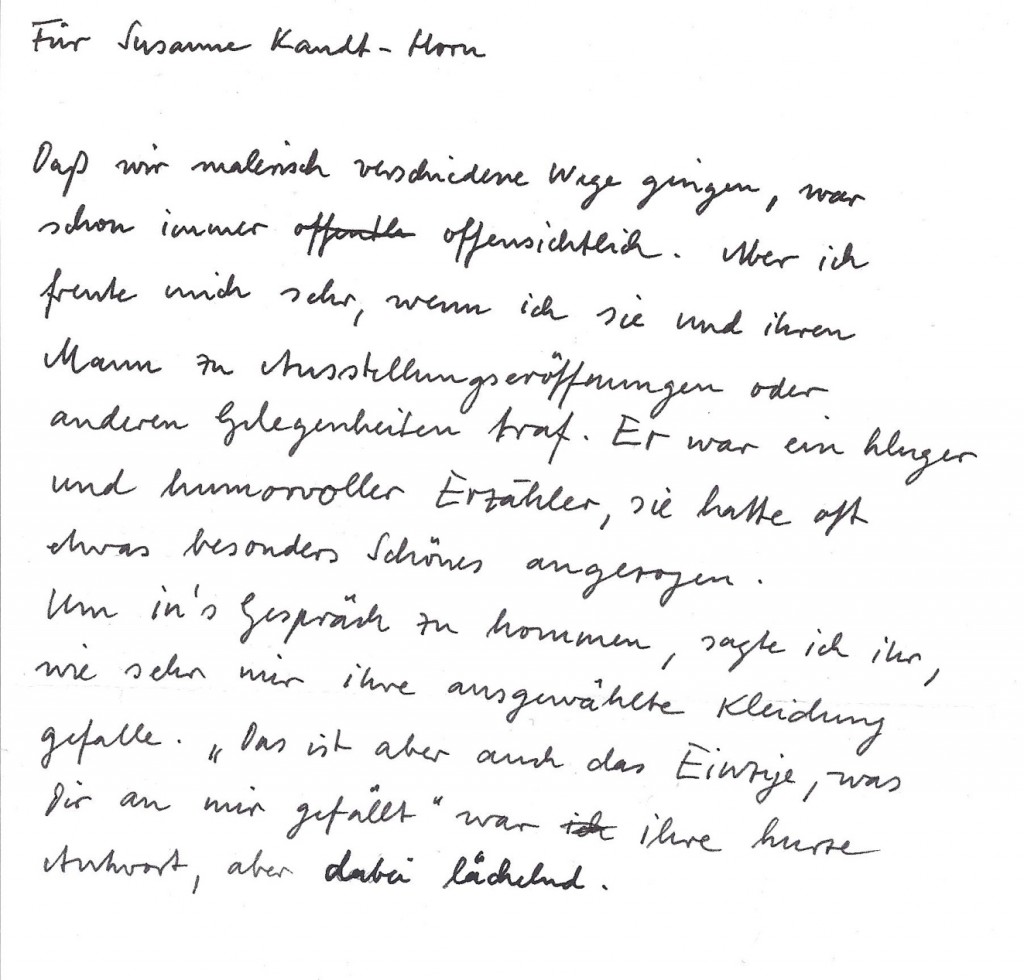 Für Susanne Kandt-Horn
Daß wir malerisch verschiedene Wege gingen, war
schon immer offentli offensichtlich. Aber ich
freute mich sehr, wenn ich sie und ihren
Mann zu Ausstellungseröffnungen oder
anderen Gelegenheiten traf. Er war ein kluger
und humorvoller Erzähler, sie hatte oft
etwas besonders Schönes angezogen.
Um in's Gespräch zu kommen, sagte ich ihr,
wie sehr mir ihre ausgewählte Kleidung
gefalle. „Das ist aber auch das Einzige, was
Dir an mir gefällt" war ich ihre kurze
Antwort, aber dabei lächelnd.